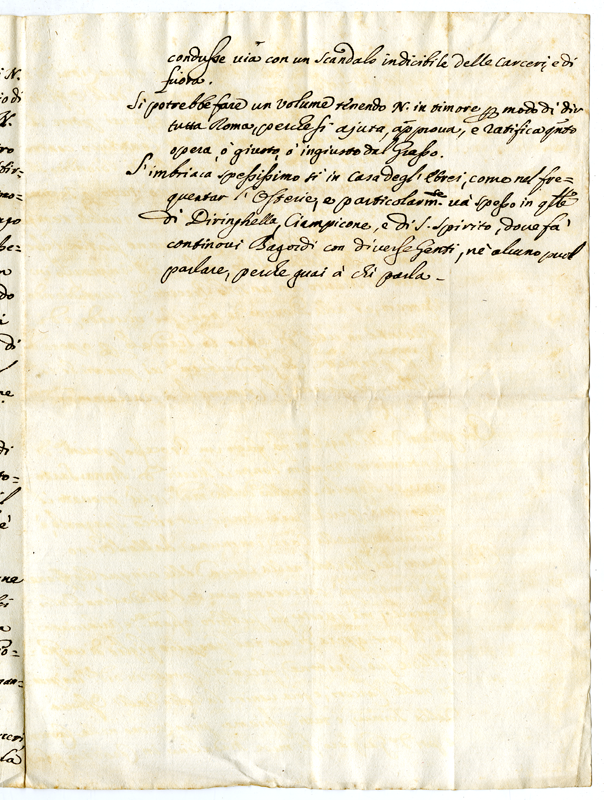 condusse via con un scandalo indicibile delle Carceri, e di
fuora.
Si potrebbe fare un volume tenendo N. in timore modo di dir
tutta Roma, perche si ajuta, approva, e ratifica qnto
opera, ò giusto, ò ingiusto dal Grasso.
S'imbriaca spessissimo sì in Casa degl'Ebrei, come nel fre=
quentar l'Osterie, e particolarmte và spesso in qlle
di Diringhella, Ciampicone, e di S. Spirito, dove fà
continovi Bagordi con diverse Genti, nè alcuno puol
parlare, perche guai à chi parla -